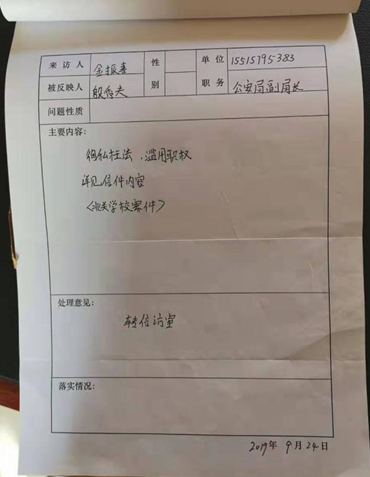 来访人 金振喜 性别 单位 15515795383
被反映人 殷香夫 职务 公安局副局长
问题性质
主要内容:
徇私枉法、滥用职权
详见信件内容
处理意见:
转信访室
落实情况:
2019年 9月24日